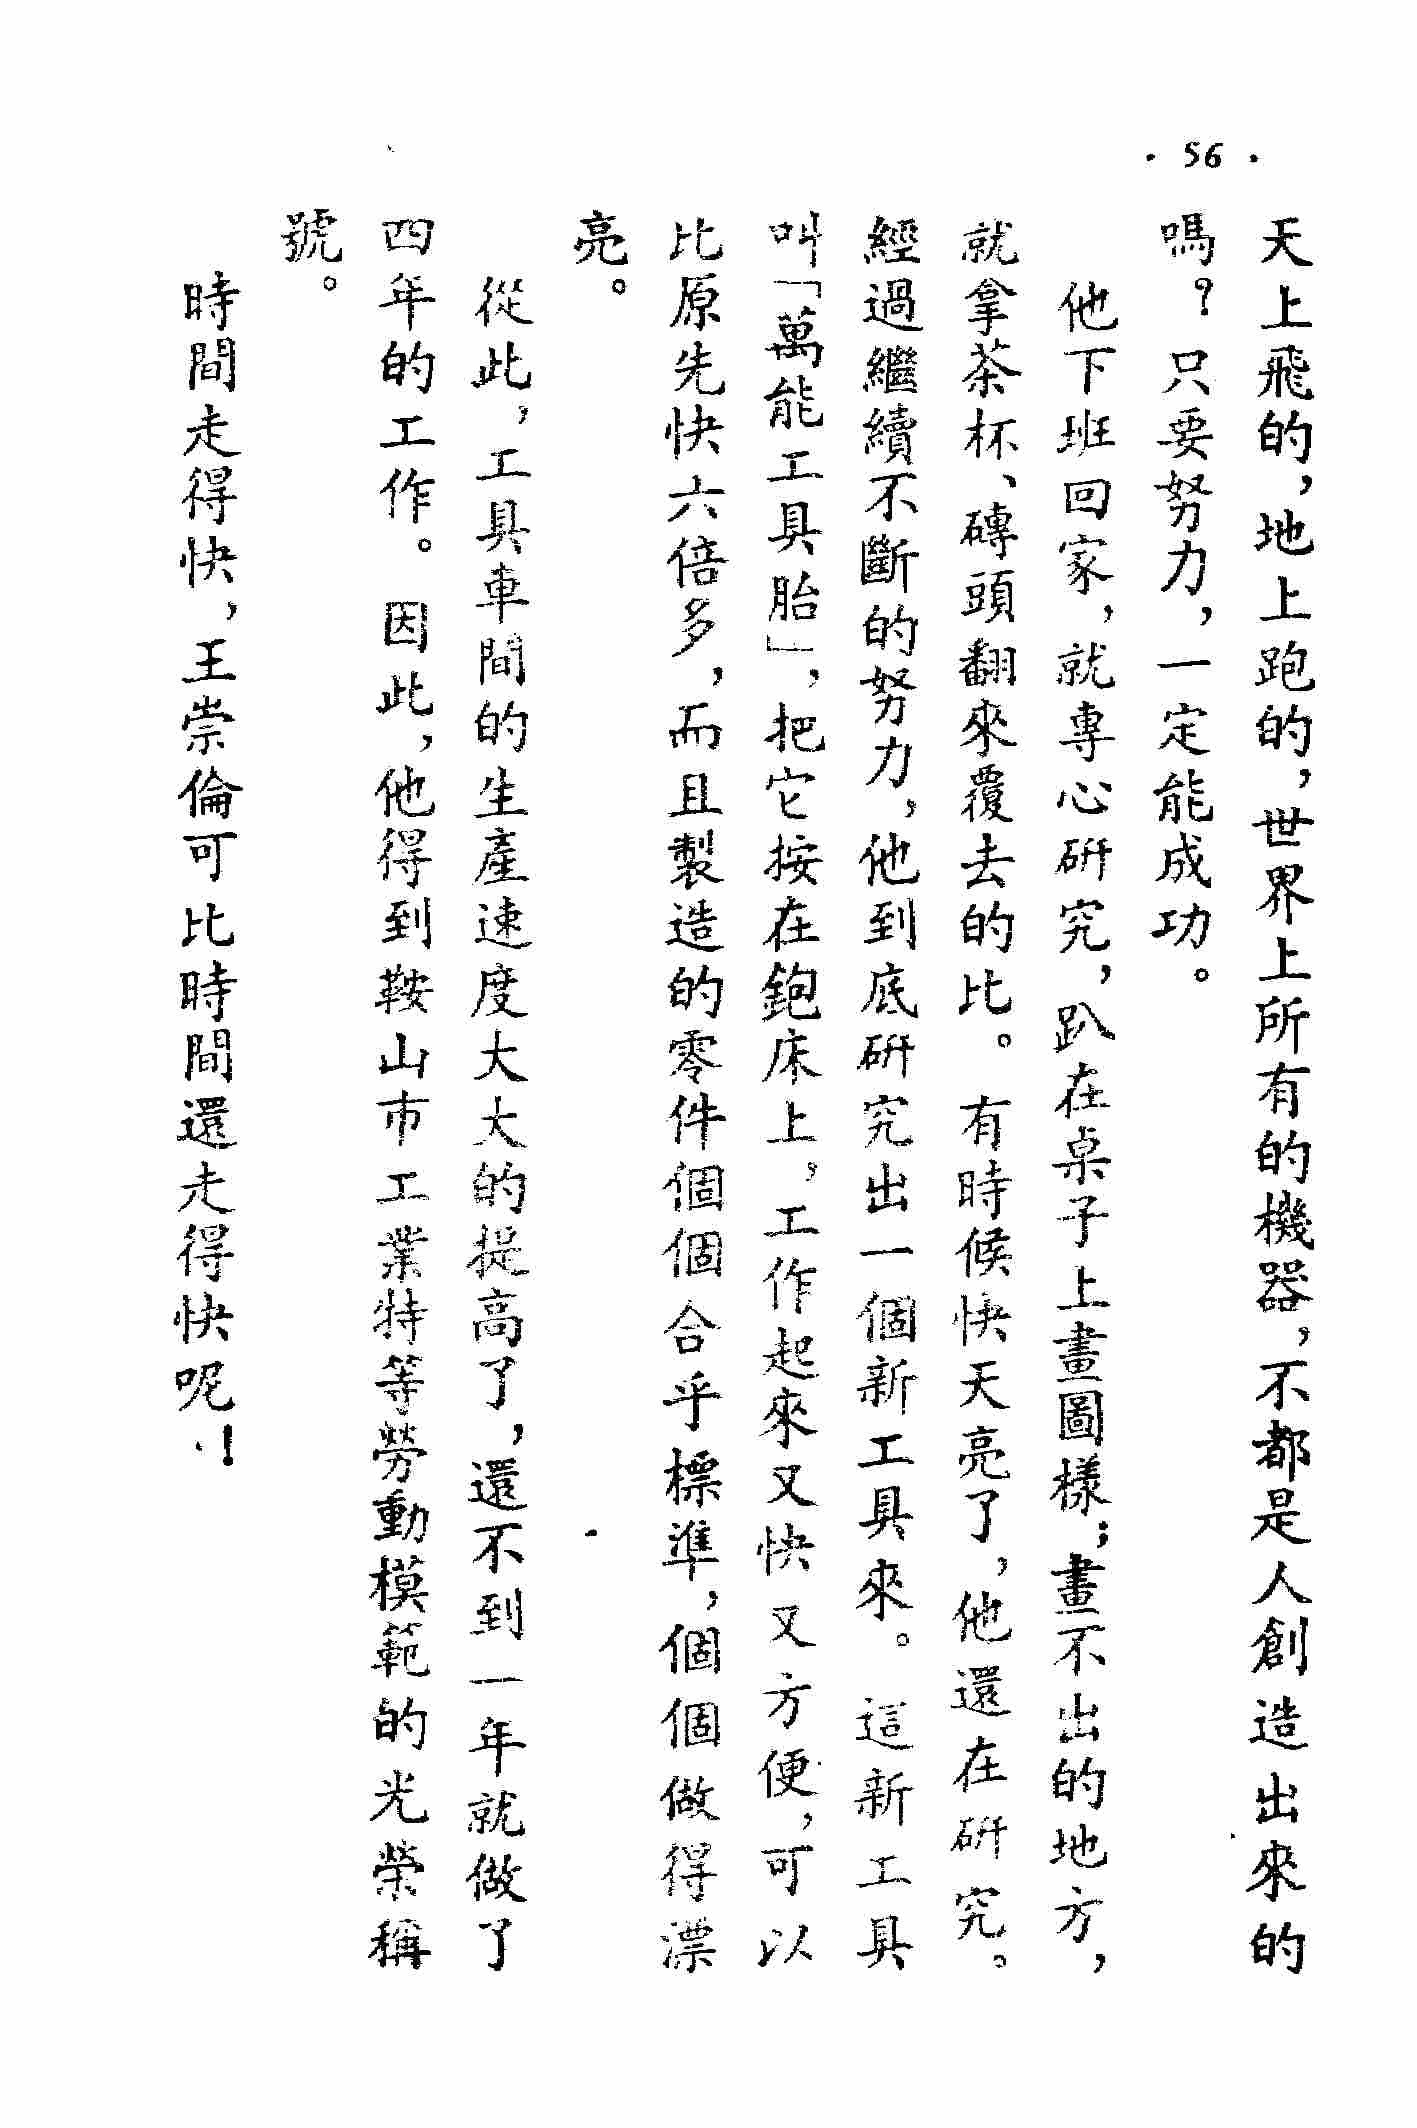 · 56 ·
天上飛的，地上跑的，世界上所有的機器，不都是人創造出來的
嗎？只要努力，一定能成功。
他下班回家，就專心研究，趴在桌子上畫圖樣；畫不出的地方，
就拿茶杯、磚頭翻來覆去的比。有時候快天亮了，他還在研究。
經過繼續不斷的努力，他到底研究出一個新工具來。這新工具
叫「萬能工具胎」，把它按在鉋床上，工作起來又快又方便，可以
比原先快六倍多，而且製造的零件個個合乎標準，個個做得漂
亮。
從此，工具車間的生產速度大大的提高了，還不到一年就做了
四年的工作。因此，他得到鞍山市工業特等勞動模範的光榮稱
號。
時間走得快，王崇倫可比時間還走得快呢！